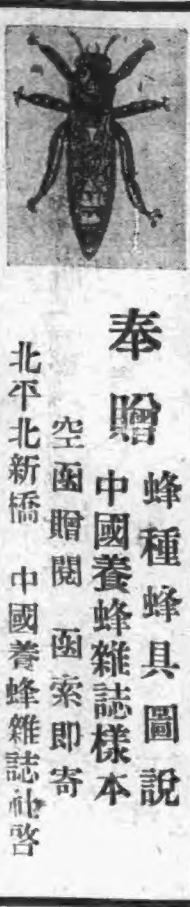 奉贈
蜂種蜂具圖說
中國養蜂雜誌樣本
空函贈閱 函索即寄
北平北新橋 中國養蜂雜誌社啓